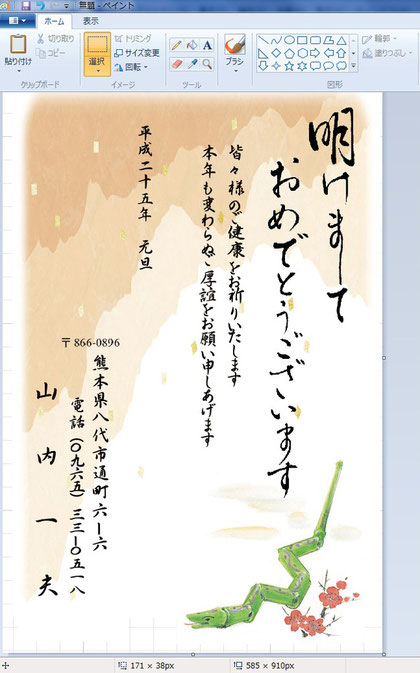 無題 - ペイント
ホーム
表示
貼り付け
切り取り
コピー
クリップボード
選択
トリミング
サイズ変更
回転
イメージ
A
ツール
ブラシ
輪郭
塗りつぶし
図形
明けまして
おめでとうございます
皆々様のご健康をお祈りいたします
本年も変わらぬご厚誼をお願い申しあげます
平成二十五年 元旦
〒866-0896
熊本県八代市通町六ー六
電話(〇九六五)三三ー〇五一八
山内一夫
171 × 38px
585 × 910px